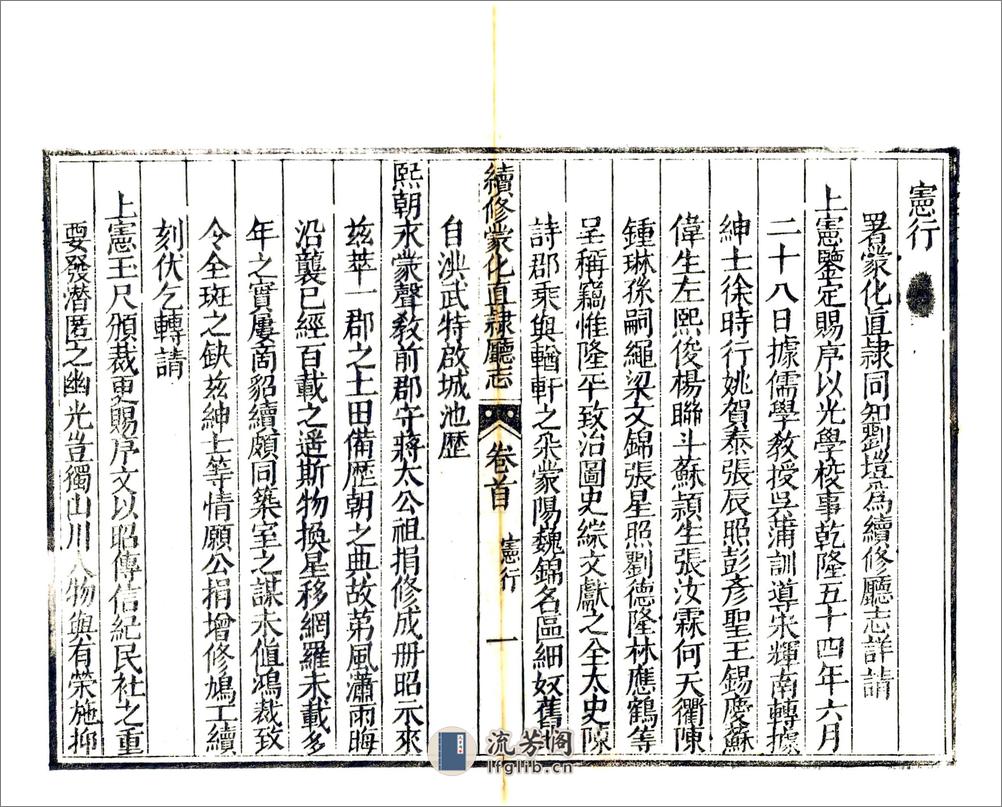 憲行
署蒙化直隷同知劉塏爲續修廳志詳請
上憲鑒定賜序以光學校事乾隆五十四年六月
二十八日據儒學教授吳蒲訓導宋輝南轉據
紳士徐時行姚賀泰張辰照彭彥聖王錫慶蘇
偉生左熙俊楊聯斗蘇頴生張汝霖何天衢陳
鍾琳孫嗣繩梁文錦張星照劉德隆林應鶴等
呈稱竊惟隆平致治圖史綜文獻之全太史陳
詩郡乘與輶軒之采蒙陽魏錦名區細奴舊
續修蒙化直隷廳志
卷首
憲行
一
自洪武特啟城池歷
熙朝永蒙聲教前郡守蔣太公祖捐修成册昭示來
兹萃一郡之土田備歷朝之典故第風瀟雨晦
沿襲已經百載之遥斯物換星移網羅未載多
年之實屢啇貂續頗同築室之謀未值鴻裁致
令全斑之缺兹紳士等情願公捐增修鳩工續
刻伏乞轉請
上憲玉尺頒裁更賜序文以昭傳信紀民社之重
要發潛匿之幽光豈獨山川人物與有榮施抑
流芳閣
lfglib.cn